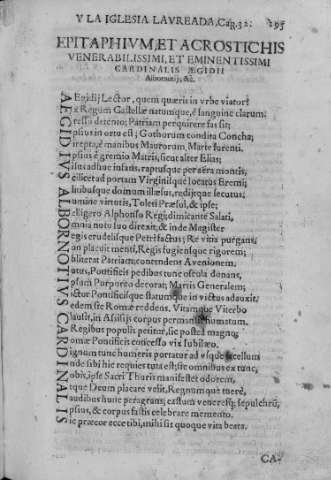 Y LA IGLESIA LAVREADA, Cap. 32. 295
EPITAPHIVM, ET ACROSTICHIS
VENERABILISSIMI, ET EMINENTISSIMI
CARDINALIS ÆGIDII
Albornotij, &c.
ÆGIDIVS ALBORNOTIVS CARDINALIS
Ægidij Lector, quem quæris in vrbe viator?
è Regum Castellæ natumque, è sanguine clarum;
detento; Patriam perquirere fas sit;
psius in orto est; Gothorum condita Concha;
irepta, è manibus Maurorum Marte furenti.
psius è gremio Matris, sicut alter Elias;
adhuc infans, raptusque per aëra montis,
scilicet ad portam Virginisque locatus Eremi;
limbusque domum illæsus, redijtque secutus;
numine virtutis, Toleti Præsul, & ipse;
elligero Alphonso Regi, dimicante Salati,
omnia nutu suo direxit, & inde Magister
egis crudelisque Petri factus; Re vitia purgans,
on placuit menti, Regis fugiensque rigorem;
bliterat Patriam, contendens Avenionem.
atus, Pontificis pedibus tunc oscula donans,
psam Purpura decorat; Martis Generalem;
ictor Pontificisque statum in victus adauxit;
edem ste Romæ reddens, Vitamque Viterbo
lausit, in Assisijs corpus humatum.
Regibus populis petitur, sic postea magno;
omæ Pontificis concesso vix Iubilæo.
ignum tunc humeris portatur ad vsque
nde sibi hic requies tuta est; sic omnibus ex tunc,
obis, ipse Sacri Thuris manifestet odorem,
tque Deum placare velit, Regnum que tueri,
audibus hunc peragrans; castum venereque sepulchrũ,
psius, & corpus fastis celebrare memento.
ic præcor ecce tibi, mihi sit quoque vita beata.
CA-